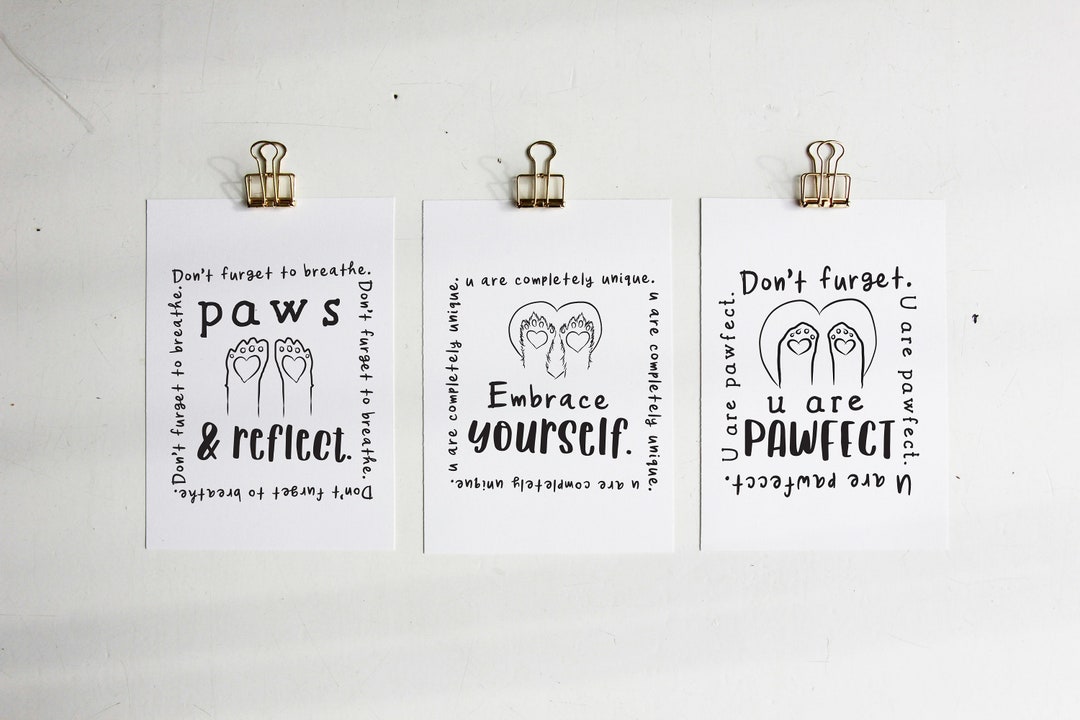 Don't furget to breathe.
Don't furget to breathe.
Don't furget to breathe.
Don't furget to breathe.
paws
& reflect.
u are completely unique.
u are completely unique.
u are completely unique.
u are completely unique.
Embrace
yourself.
Don't furget.
U are pawfect.
U are pawfecct.
U are pawfect.
u are
PAWFECT